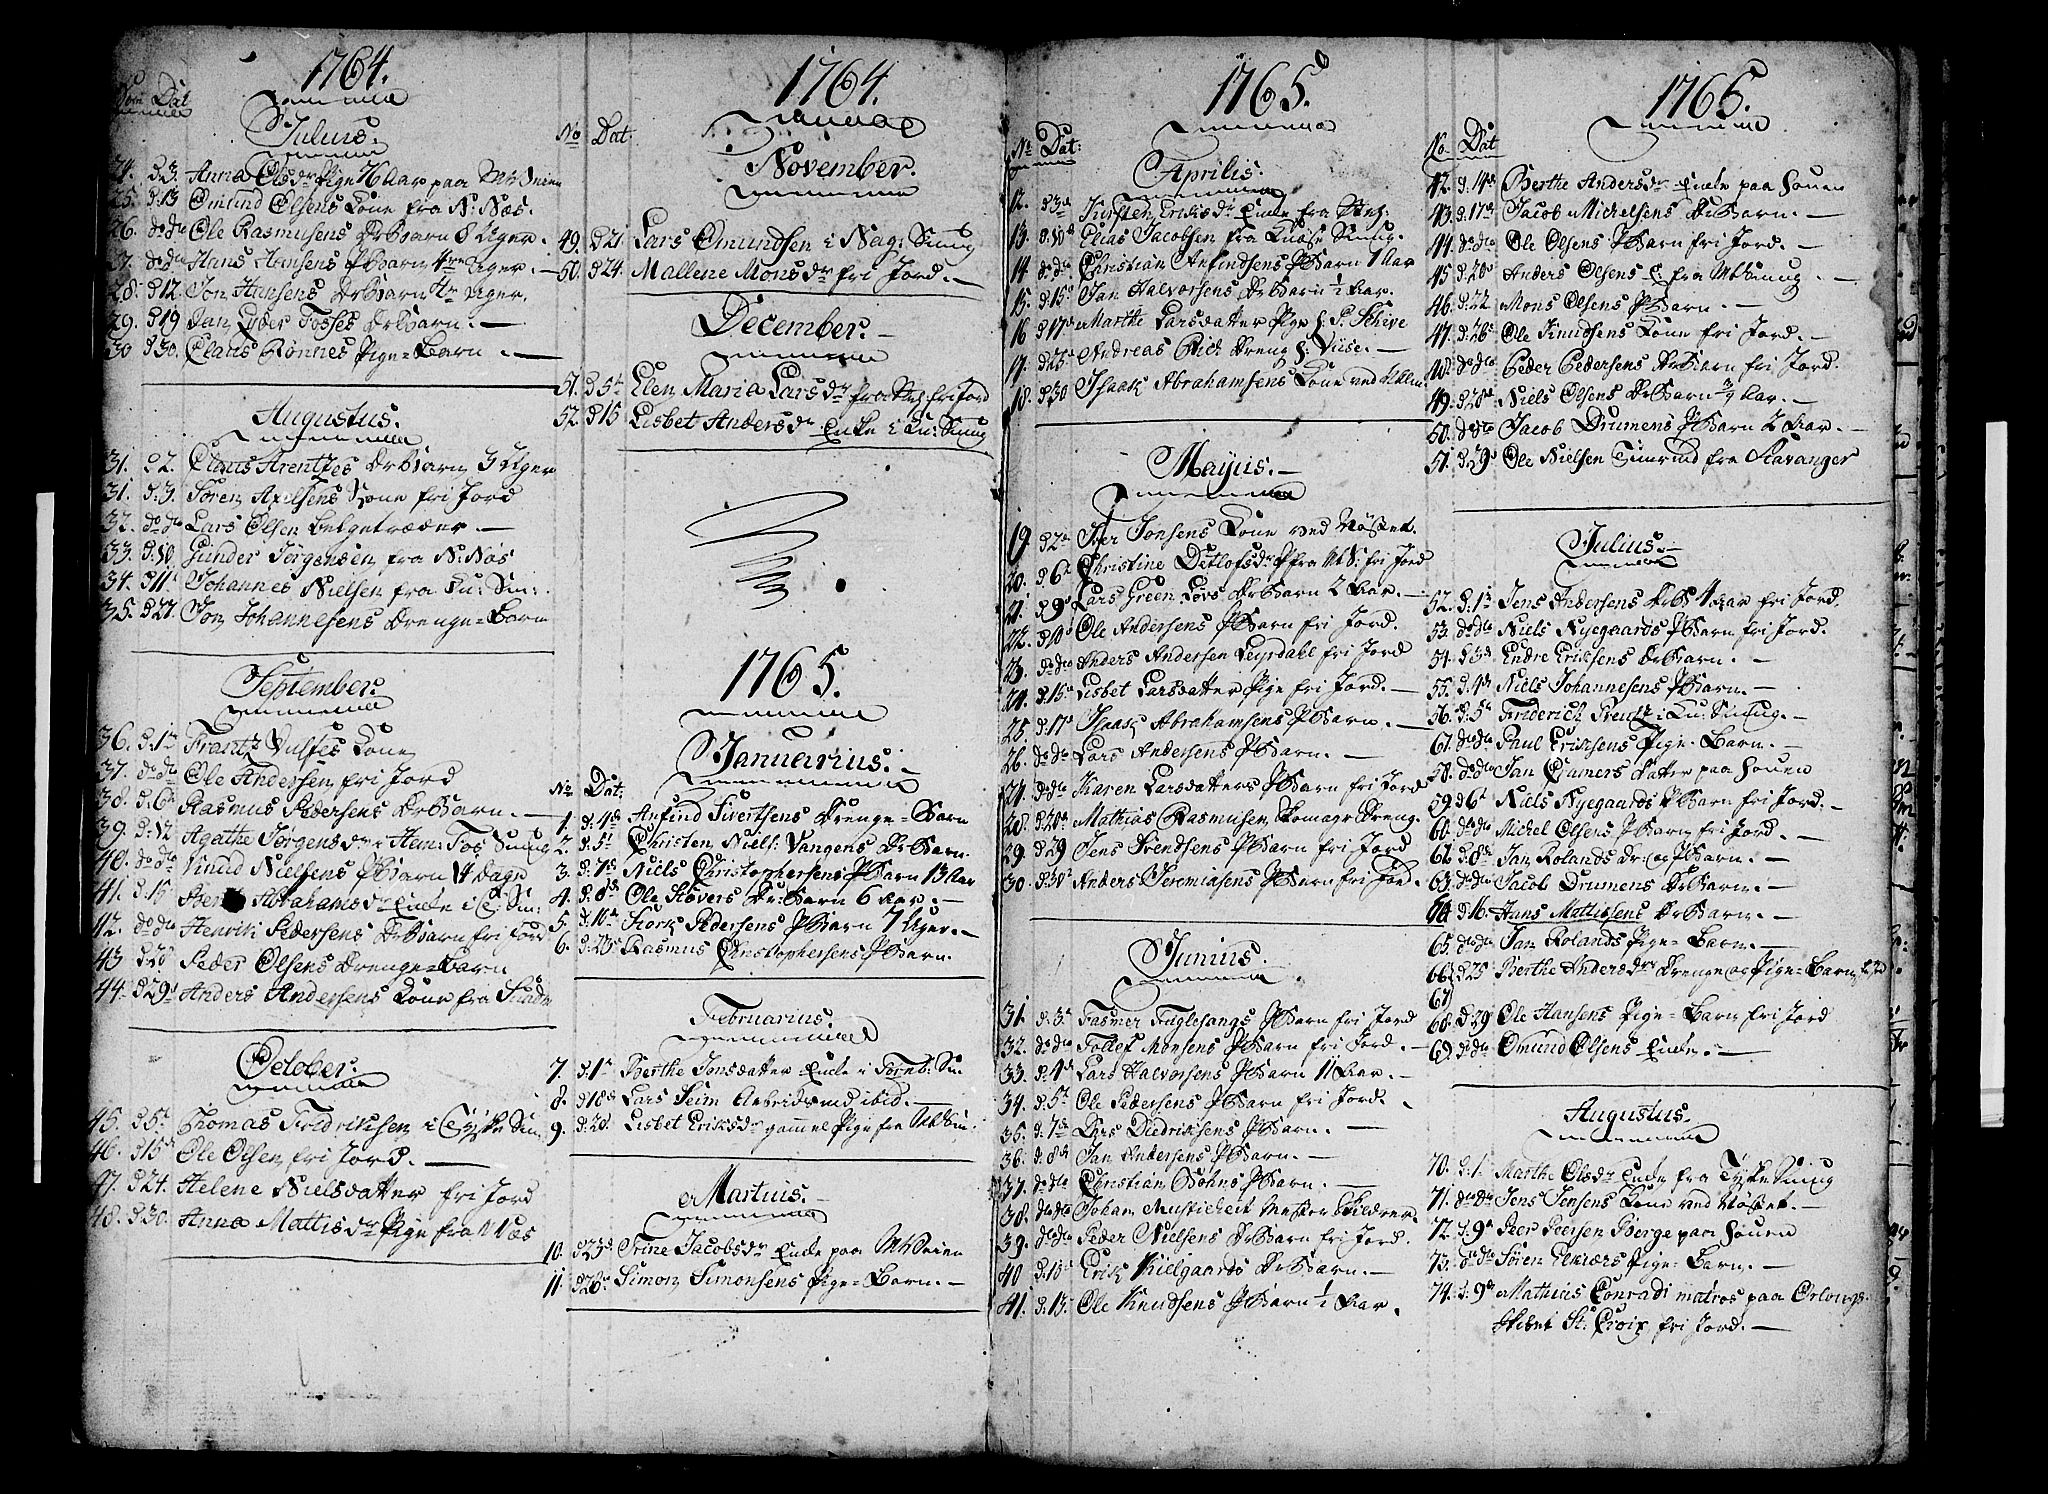 1764.
No Dat
Julius.
24. d3. Anna Olsdr Pige 76 Aar paa
25. d.13 Omund Olsens Kone fra N: Næs.
26. do dto Ole Rasmusens Dr Barn 8 Uger.
27. do dto Hans Hansens P Barn Uger.
28. d12 Jon Hansens Dr Barn Uger.
29. d19 Jan Tosses Dr Barn.
30 d30. Claus Rønnes Pige=Barn.
Augustus.
31. d2. Claus Arentzes Dr Barn 3 Uger
31. d.3. Søren Axelsens Kone fri Jord
32. do dto Lars Olsen Belgetræder.
33. d.10. Gunder Jørgensen fra N: Næs
34. d11 Johannes Nielsen fra
35. d27. Jon Johannesens Drenge=Barn
September.
36. d.1 Frantz Kone
37. do dto Ole Andersen fri Jord
38. d.6 Rasmus Pedersens Dr Barn.
39. d.12 Agathe Jørgensdr
40. do dto Knud Nielsens P Barn 14 Dage
41. d.15 Abrahamsdr Enke i
42. do dto Henrik Pedersens Dr Barn fri Jord
43 d28 Peder Olsens Drenge=Barn
44 d29 Anders Andersens Kone fra
October.
45. d5 Thomas Fredriksen i
46. d15 Ole Olsen fri Jord.
47. d24. Helene Nielsdatter fri Jord
48. d30. Anna Mattisdr Pige fra N Næs
1764.
No Dat
November.
49. d21. Lars Omundsen i
50. d24. Mallene Monsdr fri Jord.
December.
51. d.5 Elen Maria Larsdr fra fri Jord
52. d15 Lisbet Andersdr Enke i
1765.
Januarius.
No Dat:
1. d.4 Anfind Sivertsens Drenge=Barn
2. d.5 Christen Niels: Vangens Dr Barn
3. d.7 Niels Christophersens P Barn 13 Aar
4. d.8 Ole Støvers Dr: Barn 6 Aar.
5. d.10 Pedersens P Barn 7 Uger.
6. d.23 Rasmus Christophersens P Barn
Februarius.
7. d.1 Berthe Jonsdatter Enke i
8. d18 Lars Seim ibid.
9. d.20. Lisbet Eriksdr gammel Pige fra
Martius.
10. d23 Trine Jacobsdr Enke paa
11 d26 Simon Simonsens Pige=Barn.
1765.
No Dat:
Aprilis.
12. d3 Kirsten Eriksdr Enke fra
13. d.10 Elias Jacobsen fra
14 do dto Christian Anfindsens P Barn 1 Aar
15. d.15 Jan Halvorsens Dr Barn 1/2 Aar.
16 d17 Marthe Larsdatter Pige
17. d25 Andreas Dreng
18. d30 Isaak Abrahamsens Kone ved
Mayus.
19 d2 Iver Jonsens Kone ved Nøstet.
20. d6 Christine Detlofsdr fri Jord
21. d9 Lars Green Dr Barn 2 Aar.
22. d10 Ole Andersens P Barn fri Jord.
23. do dto Anders Andersen Leyrdahl fri Jord
24. d.15 Lisbet Larsdatter Pige fri Jord.
25. d.17 Isaak Abrahamsens P Barn.
26. do dto Lars Andersens P Barn.
27. do dto Karen Larsdatters P Barn fri Jord
28. d.20 Mathias Rasmusen
29. d29 Jens Svendsens P Barn fri Jord
30. d.30 Anders Jeremiasens P Barn fri Jord.
Junius.
31. d.3 Fasmer Fuglesangs P Barn fri Jord
32. do dto Tollef Monsens P Barn fri Jord.
33. d.4 Lars Halvorsens P Barn 11 Aar.
34. d.5 Ole Pedersens P Barn fri Jord.
35. d.7 Lars Diedriksens P Barn.
36. d.8 Jan Andersens P Barn.
37. do dto Christian Bøhns P Barn.
38. do dto Johan Mester
39. do dto Peder Nielsens Dr Barn fri Jord.
40 d.10 Erik Kielgaards Dr Barn.
41. d.13. Ole Knudsens P Barn 1/2 Aar.
1765.
No. Dat
42. d.14 Berthe Andersdr Enke paa
43. d.17 Jacob Mickelsens Dr Barn.
44. do dto Ole Olsens P Barn fri Jord.
45 d.20 Anders Olsens
46. d.22 Mons Olsens P Barn.
47. d.26 Ole Knudsens Kone fri Jord.
48. do dto Peder Pedersens Dr Barn fri Jord.
49. d28 Niels Olsens Dr Barn Aar.
50. do dto Jacob Drumens P Barn 2 Aar.
51. d.29 Ole Nielsen fra Stavanger
Julius.
52. d.1 Jens Andersens Dr B 4 Aar fri Jord.
53. do dto Niels Nyegaards P Barn fri Jord.
54. d3 Endre Eriksens Dr Barn.
55. d.4 Niels Johannesens P Barn.
56. d.5 Friderich
57. do dto Paul Eriksens Pige=Barn.
58. do dto Jan Cramers Datter paa
59 d6 Niels Nyegaards P Barn fri Jord.
60. do dto Michel Olsens P Barn fri Jord.
62. d.8 Jan Rolands Dr: og P Barn.
63. do dto Jacob Drumens Dr Barn.
64 d16. Hans Mathissens Dr Barn.
65. do dto Jan Rolands Pige=Barn.
66 d25 Berthe Andersdr Drenge og Pige=Barn
67
68. d.29 Ole Hansens Pige=Barn fri Jord
69. do dto Omund Olsens Enke.
Augustus.
70. d.1. Marthe Olsdr Enke fra
71. do dto Jens Jensens Kone ved Nøstet.
72. d.9 Peer Peersen Berge paa
73. do dto Søren Pige=Barn.
74. d.9 Mathias Conradi matros paa Orlougs
Skibet St: Croix fri Jord.